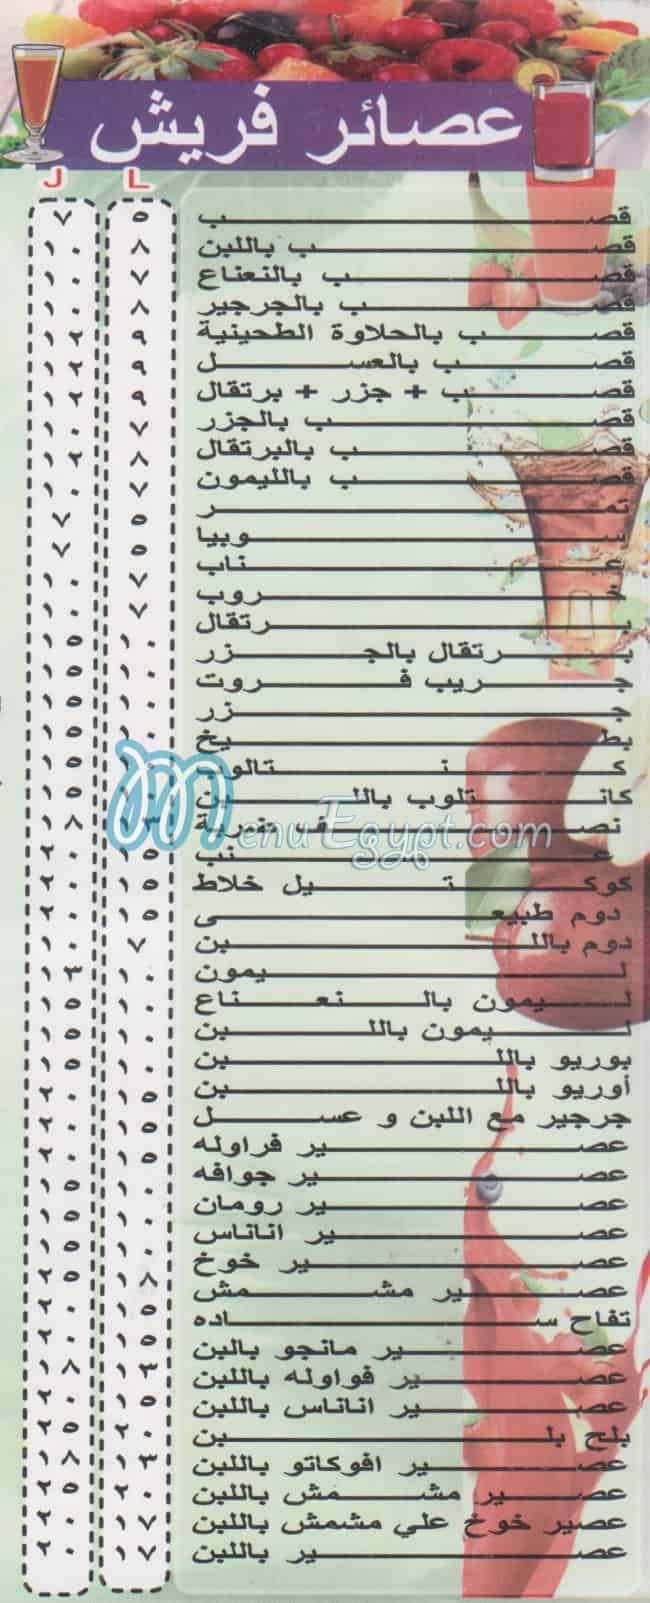 عصائر فريش
J L
قصب ٥ ٧
قصب باللبن ٨ ١٠
قصب بالنعناع ٧ ١٠
قصب بالجرجير ٨ ١٠
قصب بالحلاوة الطحينية ٩ ١٢
قصب بالعسل ٩ ١٢
قصب + جزر + برتقال ٩ ١٢
قصب بالجزر ٧ ١٠
قصب بالبرتقال ٨ ١٢
قصب بالليمون ٧ ١٠
تمر ٥ ٧
سوبيا ٥ ٧
عناب ٧ ١٠
خروب ٧ ١٠
برتقال ١٠ ١٥
برتقال بالجزر ١٠ ١٥
جريب فروت ١٠ ١٥
جزر ١٠ ١٥
بطيخ ١٥
كنتالوب ١٥
كانتلوب باللبن ١٣ ١٨
نصف ضربة ١٥ ٢٠
عنب ١٥ ٢٠
كوكتيل خلاط ١٥ ٢٠
دوم طبيعى ٧ ١٠
دوم باللبن ١٠ ١٣
ليمون ١٠ ١٥
ليمون بالنعناع ١٠ ١٥
ليمون باللبن ١٠ ١٥
بوريو باللبن ١٥ ٢٠
أوريو باللبن ١٥ ٢٠
جرجير مع اللبن و عسل ١٥ ٢٠
عصير فراوله ١٠ ١٥
عصير جوافه ١٠ ١٥
عصير رومان ١٠ ١٥
عصير اناناس ١٨ ٢٥
عصير خوخ ١٥ ٢٠
عصير مشمش ١٥ ٢٠
تفاح ساده ١٣ ١٨
عصير مانجو بالبن ١٥ ٢٠
عصير فواوله باللبن ٢٠ ٢٥
عصير اناناس باللبن ١٣ ١٨
بلح بلبن ٢٠ ٢٥
عصير افوكاتو باللبن ١٧ ٢٠
عصير مشمش باللبن ١٧ ٢٠
عصير خوخ علي مشمش باللبن
عصير باللبن
MenuEgypt.com